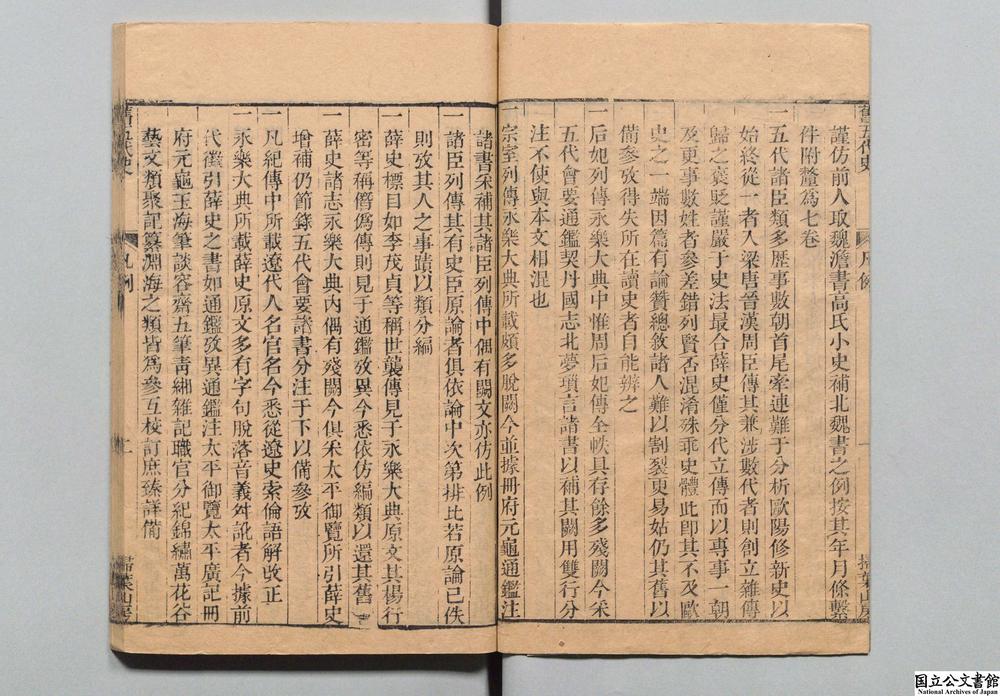 舊五代史 凡例 一 掃葉山房
謹仿前人取魏澹書高氏小史補北魏書之例按其年月條繫
件附釐爲七卷
一五代諸臣類多歷事數朝首尾牽連難于分析歐陽修新史以
始終從一者入梁唐晉漢周臣傳其兼涉數代者則創立雜傳
歸之襃貶謹嚴于史法最合薛史僅分代立傳而以專事一朝
及更事數姓者參差錯列賢否混淆殊乖史體此卽其不及歐
史之一端因篇有論贊總敘諸人難以割裂更易姑仍其舊以
備參攷得失所在讀史者自能辨之
一后妃列傳永樂大典中惟周后妃傳全帙具存餘多殘闕今采
五代會要通鑑契丹國志北夢瑣言諸書以補其闕用雙行分
注不使與本文相混也
一宗室列傳永樂大典所載頗多脫闕今並據冊府元龜通鑑注
諸書采補其諸臣列傳中偶有闕文亦仿此例
一諸臣列傳其有史臣原論者俱依論中次第排比若原論已佚
則攷其人之事蹟以類分編
一薛史標目如李茂貞等稱世襲傳見于永樂大典原文其楊行
密等稱僭僞傳則見于通鑑攷異今悉依仿編類以還其舊
一薛史諸志永樂大典內偶有殘闕今俱采太平御覽所引薛史
增補仍節錄五代會要諸書分注于下以備參攷
一凡紀傳中所載遼代人名官名今悉從遼史索倫語解改正
一永樂大典所載薛史原文多有字句脫落音義舛訛者今據前
代徵引薛史之書如通鑑攷異通鑑注太平御覽太平廣記冊
府元龜玉海筆談容齋五筆靑緗雜記職官分紀錦繡萬花谷
藝文類聚記纂淵海之類皆爲參互校訂庶臻詳備
舊五代史 凡例 二 掃葉山房
国立公文書館
National Archives of Japan